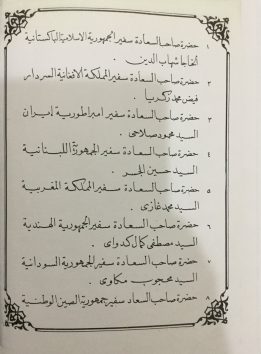 ١ حضرة صاحب السعادة سفير الجمهورية الاسلامية الباكستانية
الخاجا شهاب الدين .
٢ حضرة صاحب السعادة سفير المملكة الافغانية السردار
فيض محمد زكريا .
٣ حضرة صاحب السعادة سفير امبراطورية إيران
السيد محمود صلاحي .
٤ حضرة صاحب السعادة سفير الجمهورية اللبنانية
السيد حسين الحر .
٥ حضرة صاحب السعادة سفير المملكة المغربية
السيد محمد غازي .
٦ حضرة صاحب السعادة سفير الجمهورية الهندية
السيد مصطفى كمال كدواى .
٧ حضرة صاحب السعادة سفير الجمهورية السودانية
السيد محجوب مكاوى .
٨ حضرة صاحب السعاد سفير جمهورية الصين الوطنية